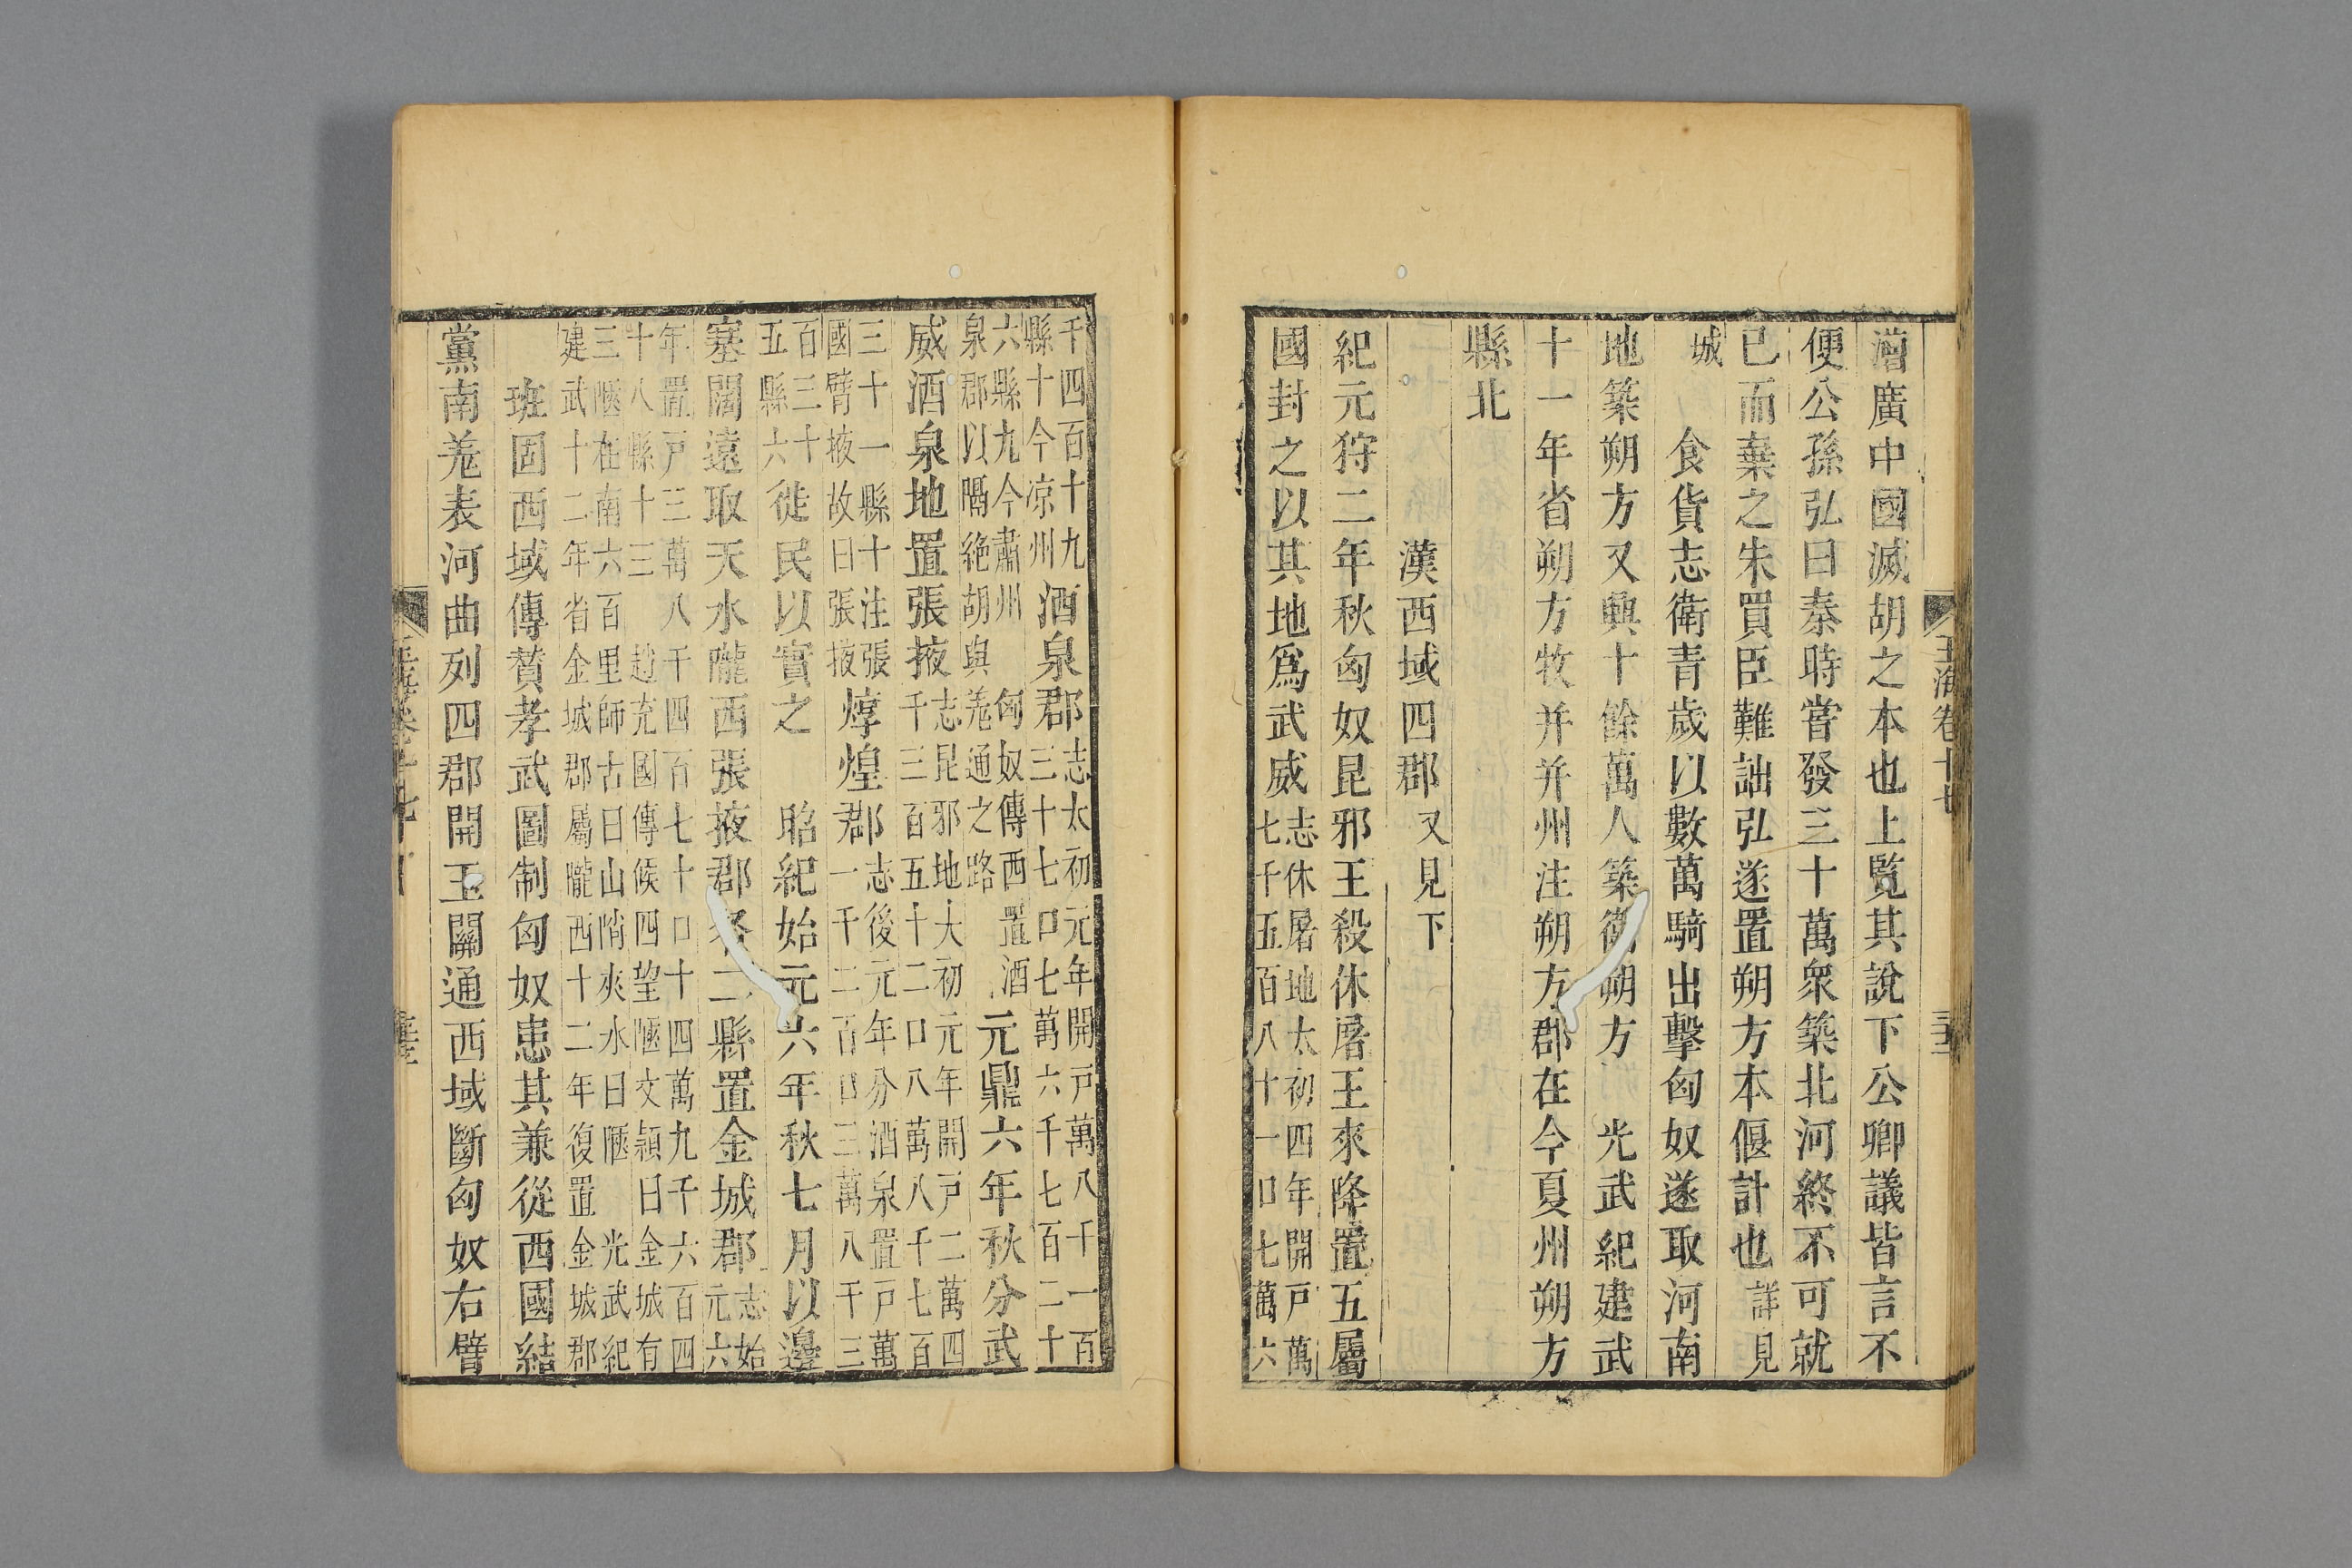 漕廣中國滅胡之本也上覽其說下公卿議皆言不
便公孫弘曰秦時嘗發三十萬衆築北河終不可就
已而棄之朱買臣難詘弘遂置朔方本偃計也詳見
城
食貨志衛青歲以數萬騎出擊匈奴遂取河南
地築朔方又興十餘萬人築衛朔方
光武紀建武
十一年省朔方牧并并州注朔方郡在今夏州朔方
縣北
漢西域四郡又見下
紀元狩二年秋匈奴昆邪王殺休屠王來降置五屬
國封之以其地爲武威
志休屠地太初四年開戸萬
七千五百八十一口七萬六
玉海卷十七
千四百十九
縣十今凉州
酒泉郡
志太初元年開戸萬八千一百
三十七口七萬六千七百二十
六縣九今肅州
匈奴傳西置酒
泉郡以隔絶胡與羗通之路
元鼎六年秋分武
威酒泉地置張掖
志昆邪地大初元年開戸二萬四
千三百五十二口八萬八千七百
三十一縣十注張
國臂掖故曰張掖
燉煌郡
志後元年分酒泉置戸萬
一千二百口三萬八千三
百三十
五縣六
徙民以實之
昭紀始元六年秋七月以邊
塞闊遠取天水隴西張掖郡各二縣置金城郡
志始
元六
年置戸三萬八千四百七十口十四萬九千六百四
十八縣十三
趙充國傳候四望陿文穎曰金城有
三陿在南六百里師古曰山悄夾水曰陿
光武紀
建武十二年省金城郡屬隴西十二年復置金城郡
班固西域傳贊孝武圖制匈奴患其兼從西國結
黨南羗表河曲列四郡開玉關通西域斷匈奴右臂